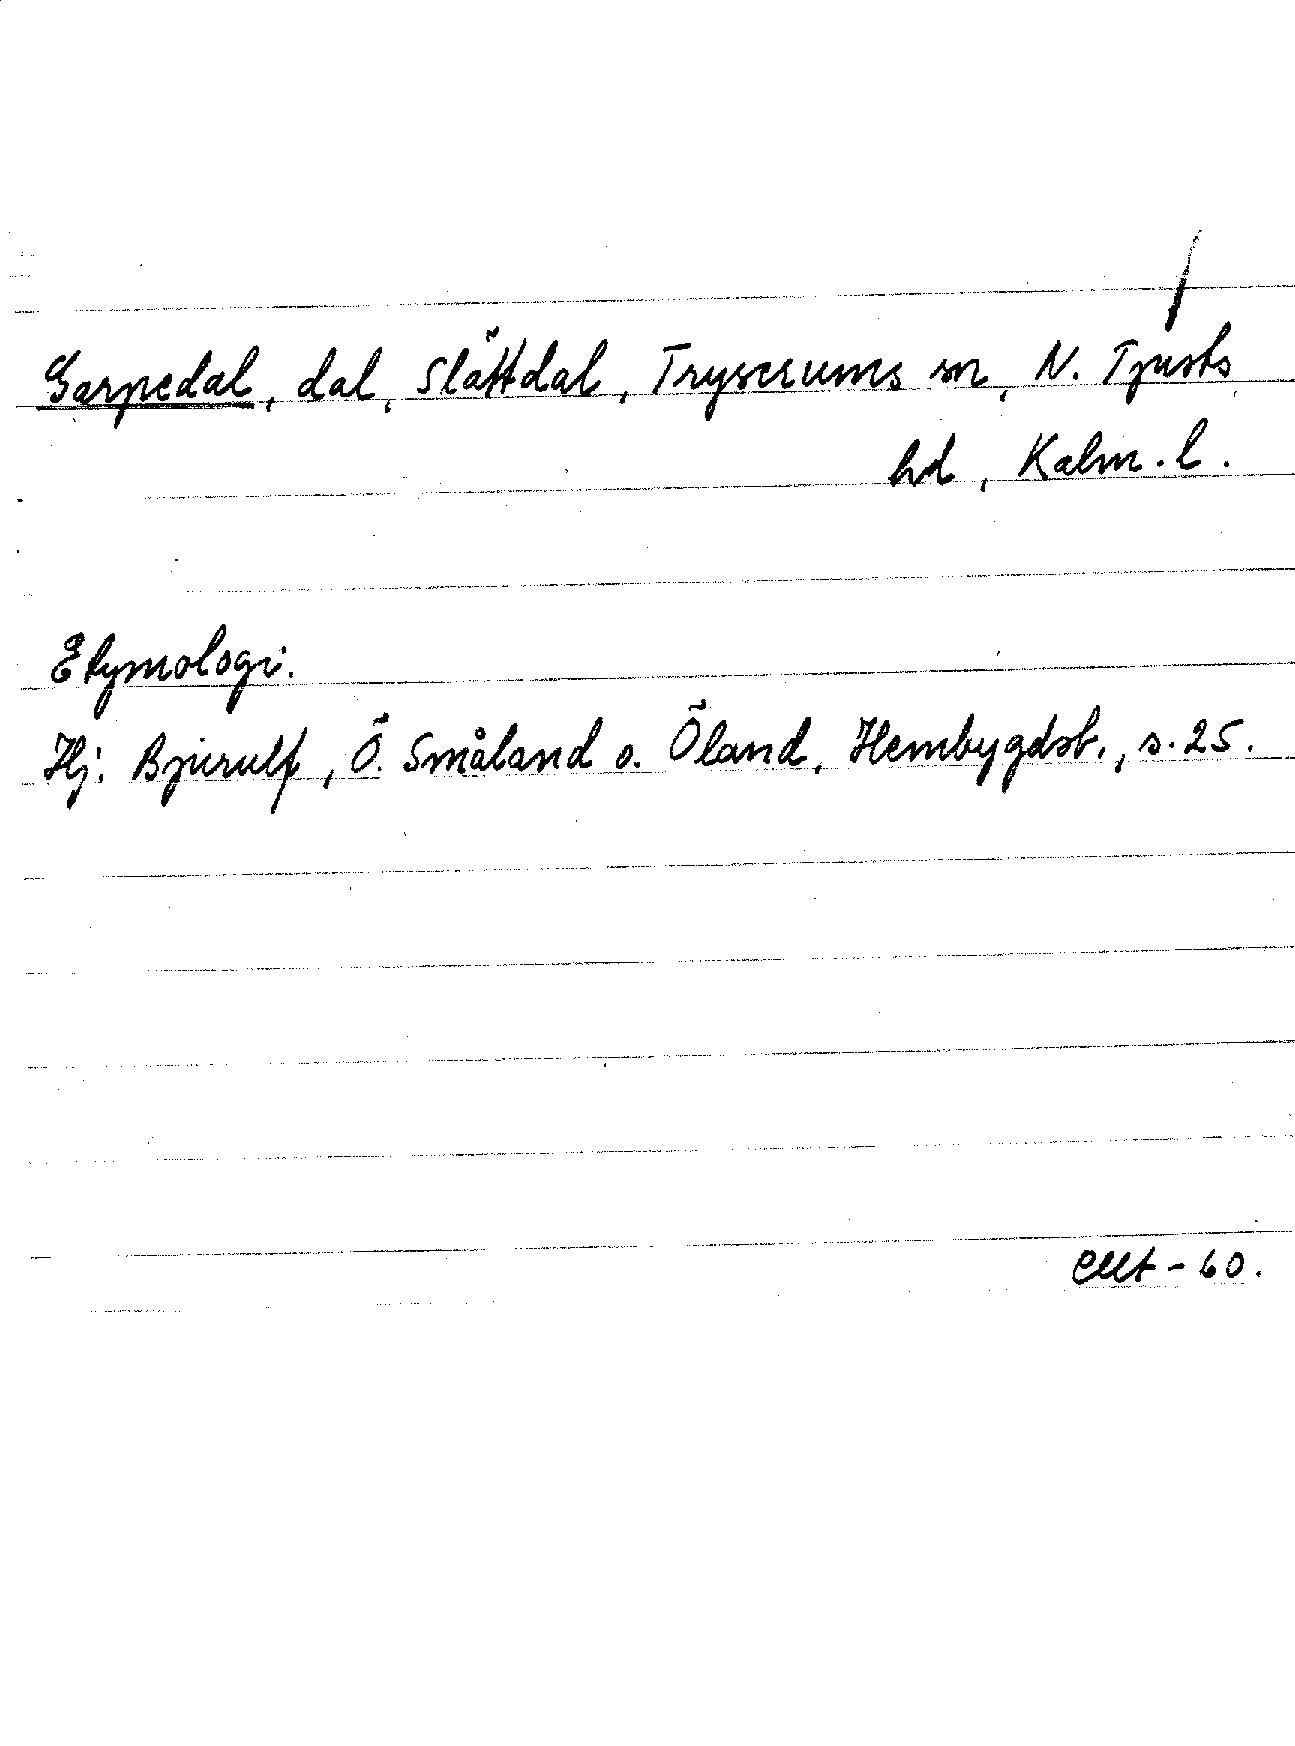 Garpedal, dal, Slättdal, Tryserums sn, N. Tjusts
hd, Kalm. l.
Etymologi.
Hj. Bjurulf, Ö. Småland o. Öland, Hembygdsb., s. 25.
-60.